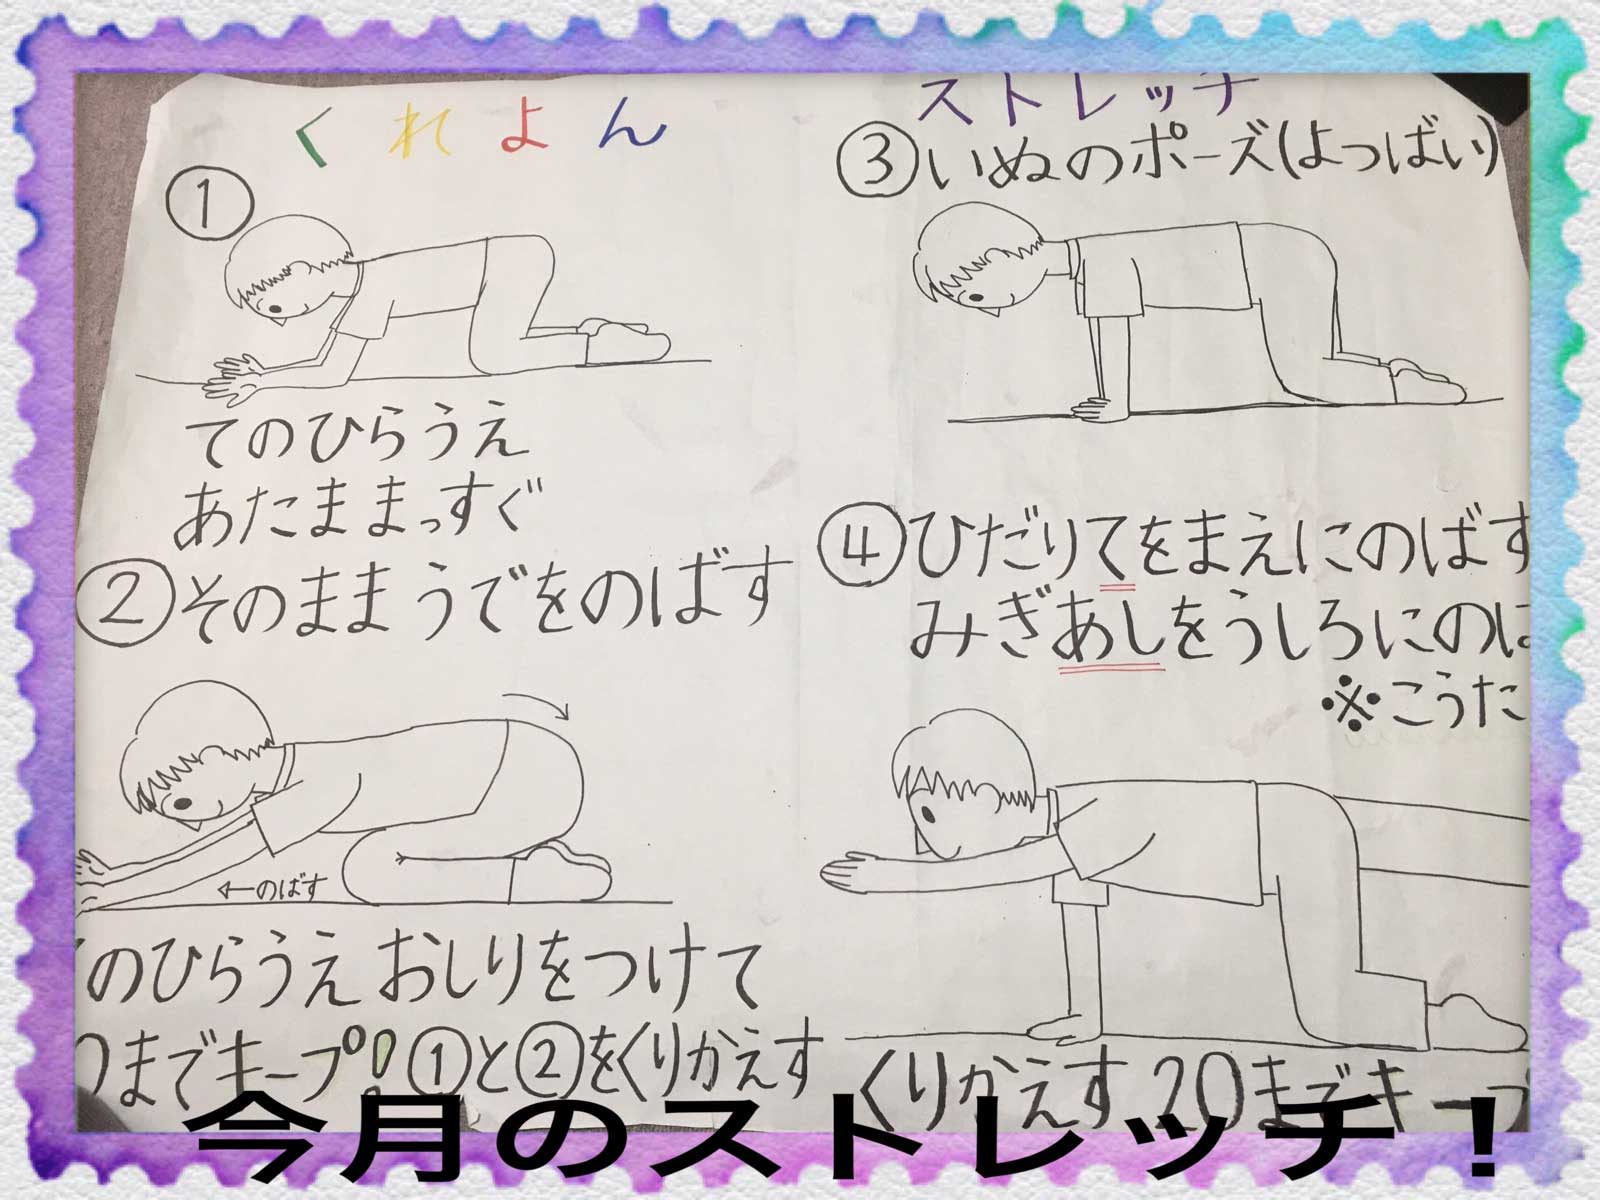 くれよん
ストレッチ
①
てのひらうえ
あたままっすぐ
②そのままうでをのばす
←のばす
のひらうえ おしりをつけて
つまでキープ!①と②をくりかえす
③いぬのポーズ(よつばい)
④ひだりてをまえにのばす
みぎあしをうしろにのば
※こうた
くりかえす 20までキープ
今月のストレッチ!